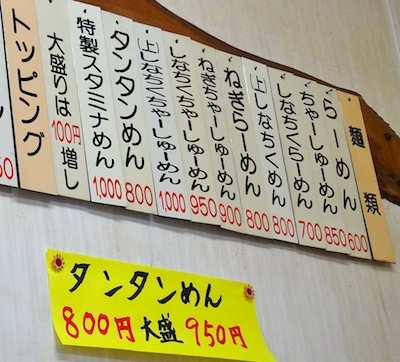 麺類
らーめん 600
ちゃーしゅーめん 850
しなちくらーめん 700
㊤しなちくめん 800
ねぎらーめん 800
ねぎちゃーしゅーめん 900
しなちくちゃーしゅーめん 950
㊤しなちくちゃーしゅーめん 1,000
タンタンめん 800
特製スタミナめん 1,000
大盛りは100円増し
トッピング
タンタンめん
800円 大盛 950円